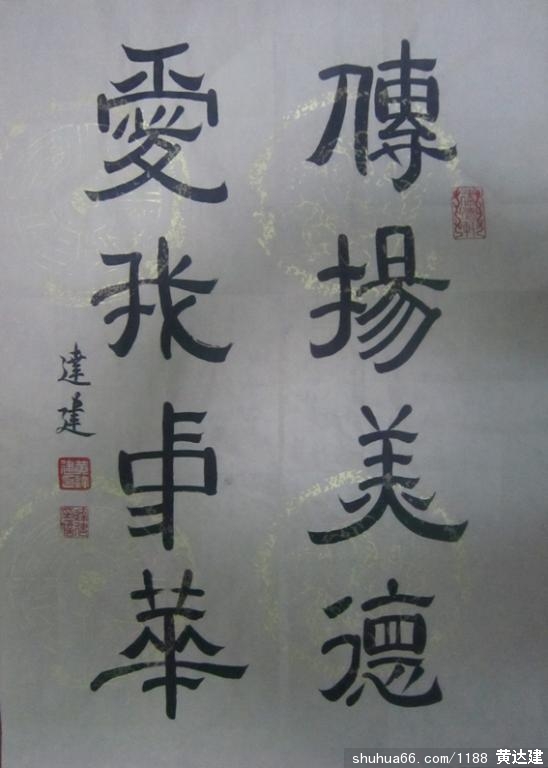 傳揚美德
愛我中華
達建
shuhua66.com/1188 黄达建